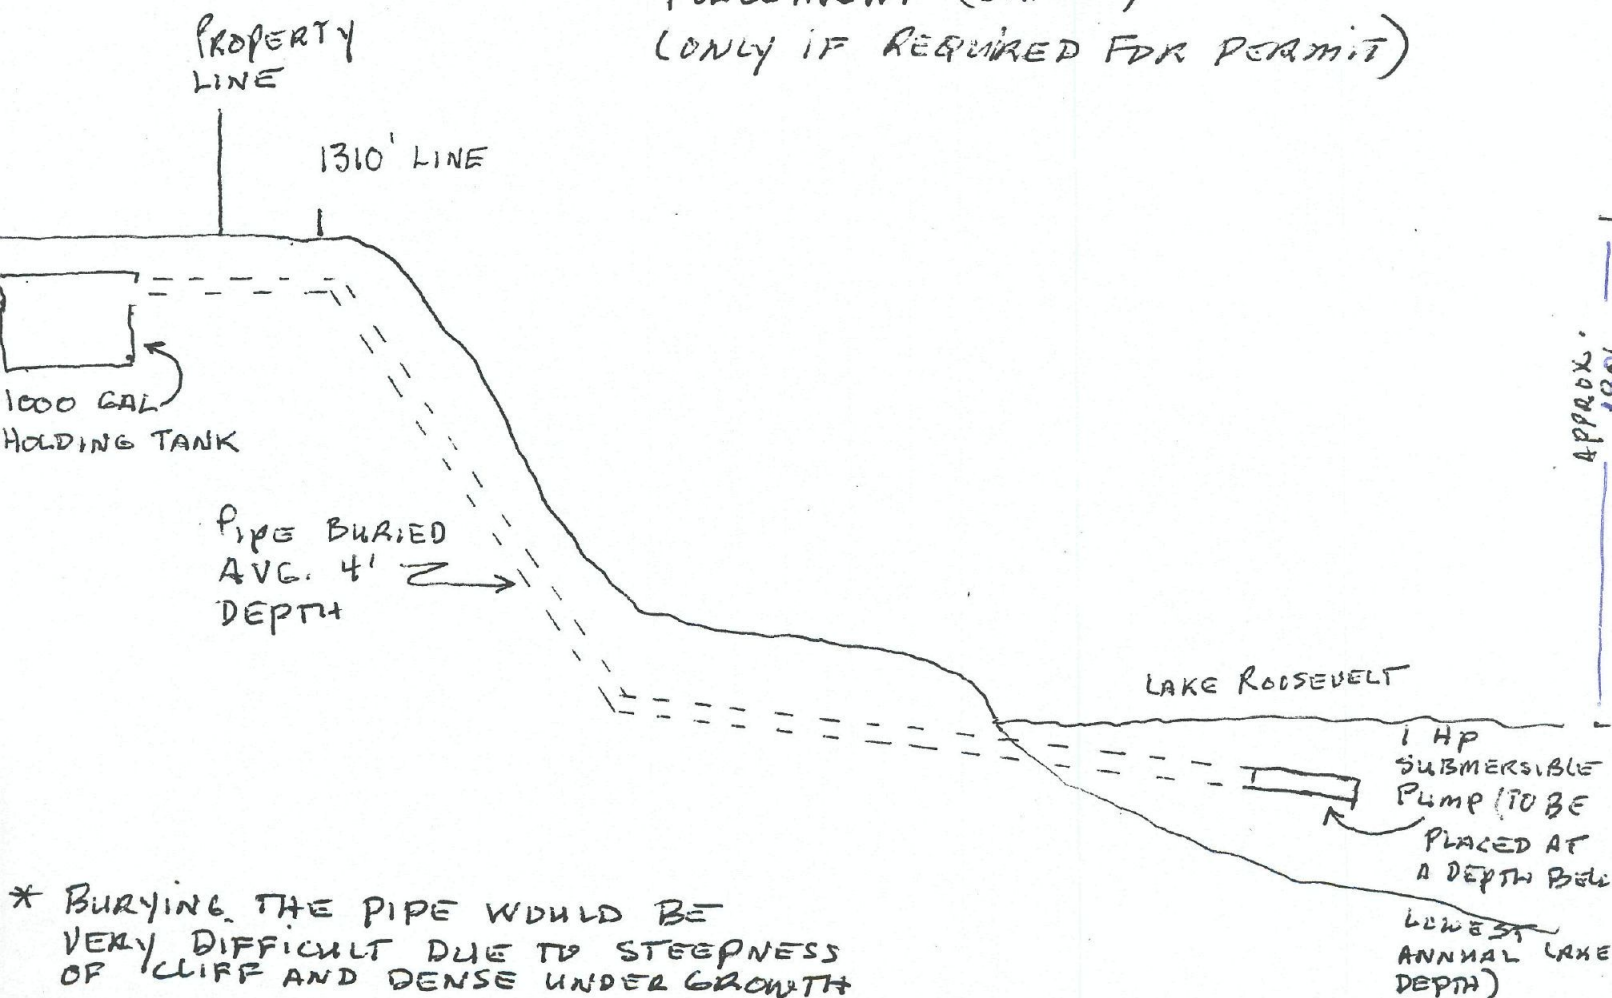 (ONLY IF REQUIRED FOR PERMIT)
PROPERTY
LINE
1310' LINE
1000 GAL
HOLDING TANK
PIPE BURIED
AVG. 4'
DEPTH
APPROX.
LAKE ROOSEVELT
1 HP
SUBMERSIBLE
PUMP (TO BE
PLACED AT
A DEPTH
LOWEST
ANNUAL LAKE
DEPTH)
* BURYING THE PIPE WOULD BE
VERY DIFFICULT DUE TO STEEPNESS
OF CLIFF AND DENSE UNDER GROWTH